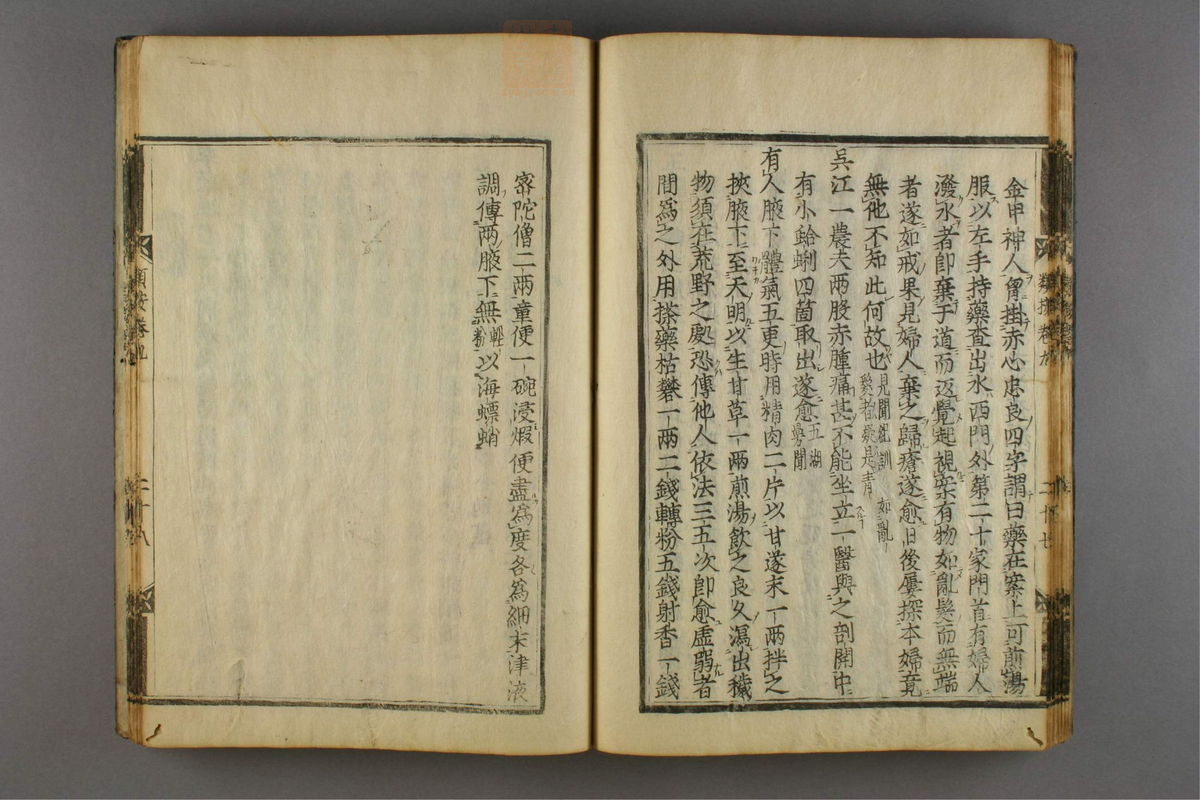 金甲神人胷掛赤心忠良四字謂曰藥在案上可煎湯
服以左手持藥査出水西門外第二十家門首有婦人
潑水者卽棄于道而返覺起視案有物如亂髮而無端
者遂如戒果見婦人棄之歸瘡遂愈日後屢探本婦竟
無他不知此何故也見聞紀訓 如亂
髮者疑是青
吳江一農夫兩股赤腫痛甚不能坐立一醫與之剖開中
有小蛤蜊四箇取出遂愈五湖
㬅聞
有人腋下體氣五更時用精肉二片以甘遂末一兩拌之
挾腋下至天明以生甘草一兩煎湯飲之良久瀉出穢
物須在荒野之處恐傳他人依法三五次卽愈虛弱者
間爲之外用搽藥枯礬一兩二錢轉粉五錢射香一錢
類按卷九
二十七
宻陀僧二兩童便一碗浸煆便盡爲度各爲細末津液
調傅兩腋下無輕
粉以海螵蛸
類按卷九
二十八